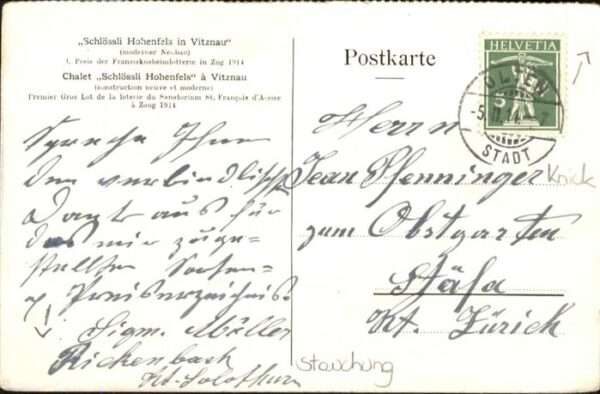 „Schlössli Hohenfels in Vitznau"
(moderner Neubau)
1. Preis der Franziskusheimlotterie in Zug 1914
Chalet „Schlössli Hohenfels" à Vitznau
(construction neuve et moderne)
Premier Gros Lot de la loterie du Sanatorium St. François d'Assise
à Zoug 1914
Postkarte
HELVETIA
5
OLTEN
STADT
Spreche Ihnen
den verbindlichst
Dank aus für
das mir zuge=
stellten Sorten=
Preisverzeichnis.
Sigm. Müller
Rickenbach
Kt. Solothurn
Herrn
Jean Pfenninger
zum Obstgarten
Stäfa
Kt. Zürich
Knick
Stauchung